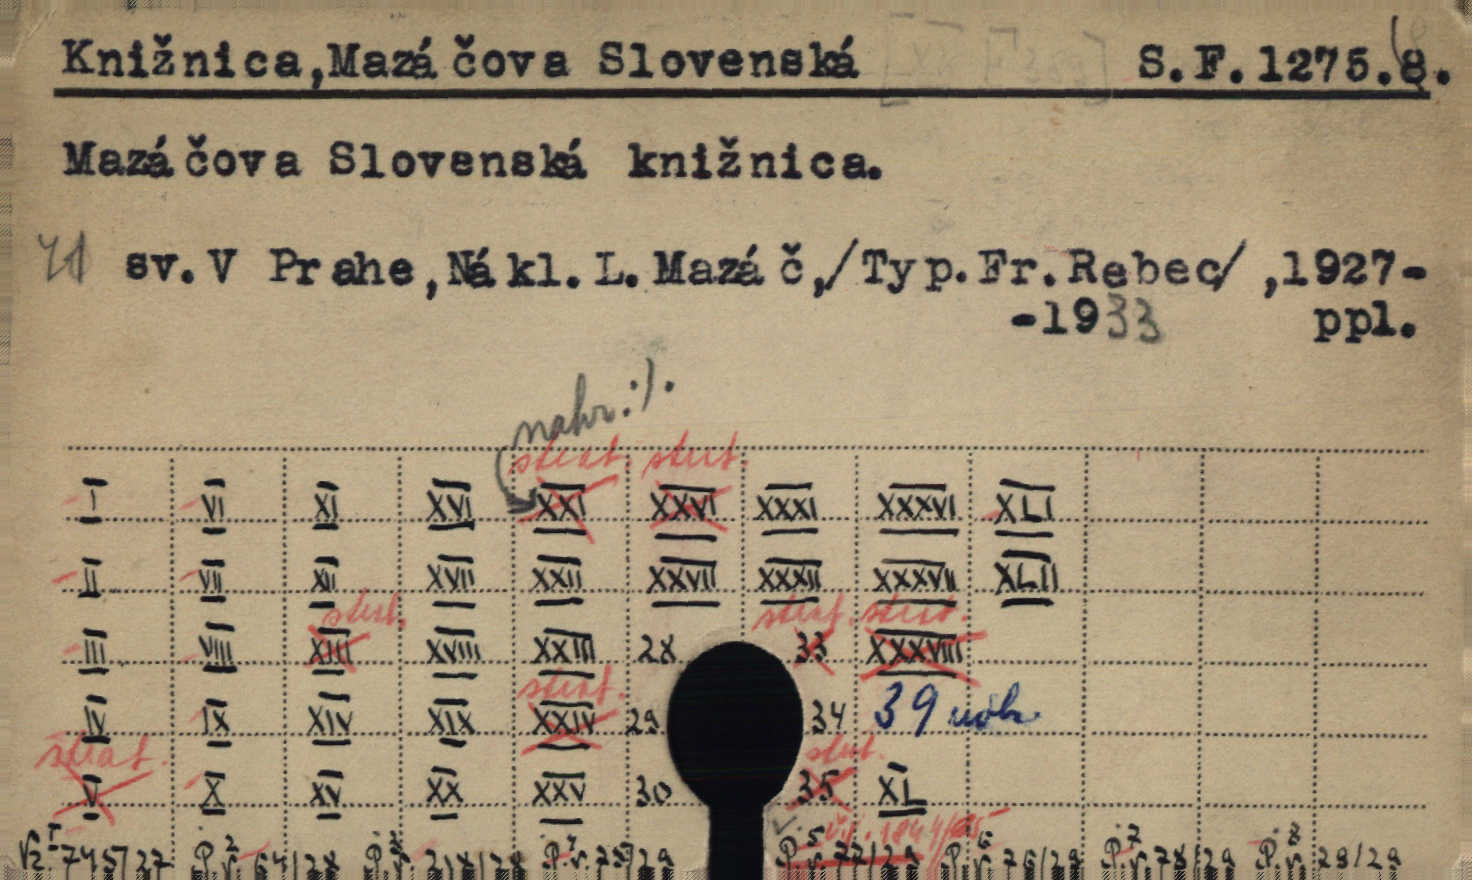 Knižnica,Mazáčova Slovenská S.F.1275.8.
Mazáčova Slovenská knižnica.
41 sv. V Prahe,Nákl.L.Mazáč,/Typ.Fr.Rebec/ ,1927-
-1933 ppl.
nahr.
strat. strat.
I VI XI XVI XXI XXVI XXXI XXXVI XLI
II VII XII XVII XXII XXVII XXXII XXXVII XLII
strat. strat. strat.
III VIII XIII XVIII XXIII 28 33 XXXVIII
strat.
IV IX XIV XIX XXIV 29 34 39
strat. strat.
V X XV XX XXV 30 35 XL
745/27 P.V. 64/28 218/28 P.V. 75/29 P.V. 77/29 P.V. 76/29 P.V. 78/29 P.V. 29/29